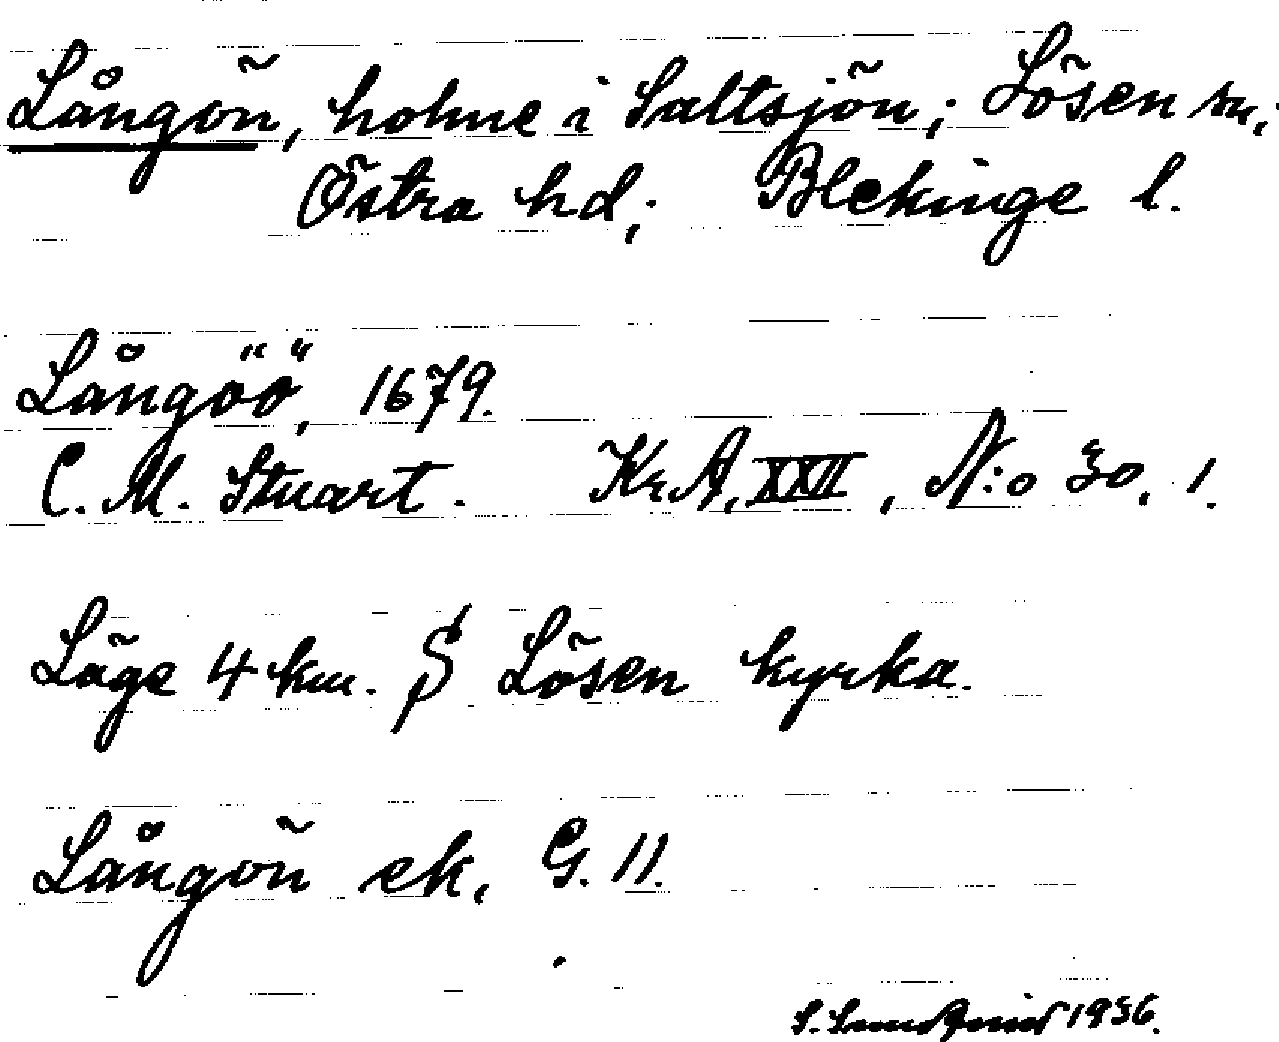 Långön, holme i Saltsjön; Lösen sn;
Östra hd; Blekinge l.
Långöö, 1679.
C. M. Stuart. Kr. A. XXII, N:o 30. 1.
Läge 4 km. S Lösen kyrka.
Långön ek. G. 11.
S. 1936.